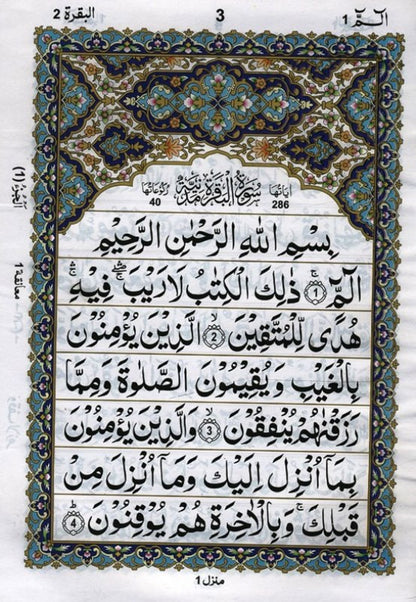 البقرة 2
3
الٓمّٓ 1
اٰیاتها 286
سُوْرَةُ الْبَقَرَةِ مَدَنِیَّةٌ
رکوعاتها 40
بِسْمِ اللّٰهِ الرَّحْمٰنِ الرَّحِیْمِ
الٓمّٓ ۚ ۝1 ذٰلِكَ الْكِتٰبُ لَا رَیْبَ ۛۖۚ فِیْهِ ۛۚ
هُدًی لِّلْمُتَّقِیْنَ ۙ ۝2 الَّذِیْنَ یُؤْمِنُوْنَ
بِالْغَیْبِ وَ یُقِیْمُوْنَ الصَّلٰوةَ وَ مِمَّا
رَزَقْنٰهُمْ یُنْفِقُوْنَ ۙ ۝3 وَالَّذِیْنَ یُؤْمِنُوْنَ
بِمَاۤ اُنْزِلَ اِلَیْكَ وَ مَاۤ اُنْزِلَ مِنْ
قَبْلِكَ ۚ وَ بِالْاٰخِرَةِ هُمْ یُوْقِنُوْنَ ؕ ۝4
معانقة 1
(1)
منزل 1